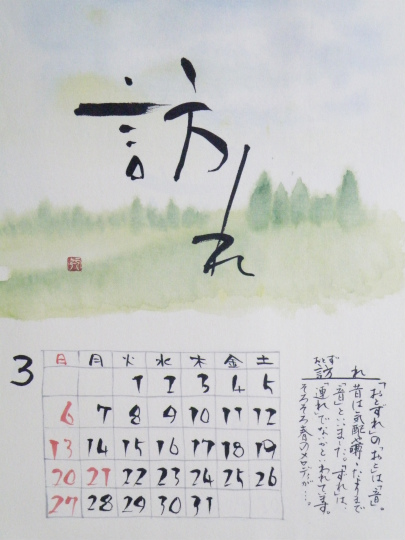 訪れ
3
日 月 火 水 木 金 土
1 2 3 4 5
6 7 8 9 10 11 12
13 14 15 16 17 18 19
20 21 22 23 24 25 26
27 28 29 30 31
訪れ
おとず
「おとずれ」の「おと」は「音」。
昔は気配や
「音」といいました。「ずれ」は、
「連れ」でないかといわれています。
そろそろ春のメロディが…。